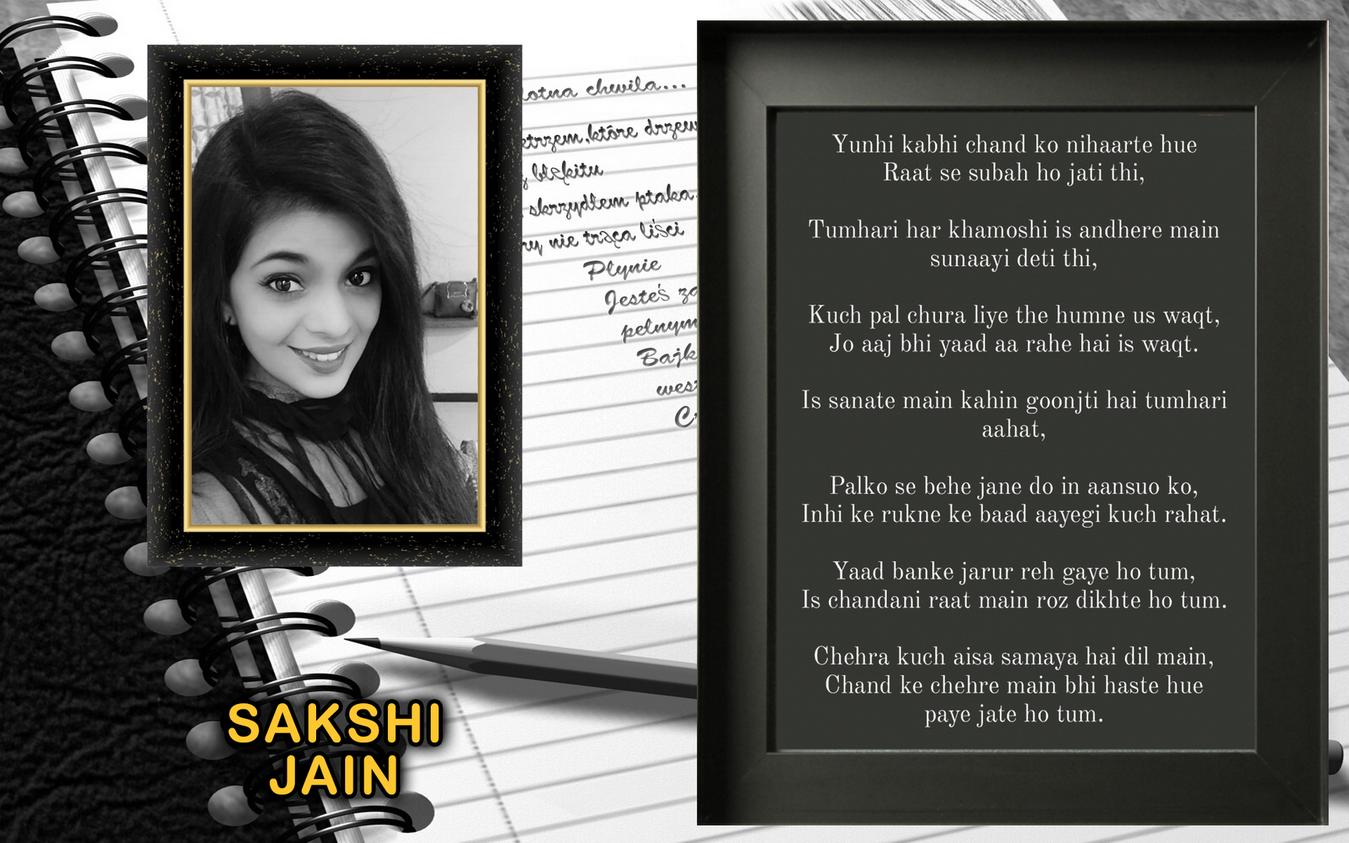 otna chwila...
etrzem,które drzew
błękitu
skrzydłem ptaka
ry nie trząca liści
Płynie
Jesteś
pełnym
Bajk
west
C
SAKSHI
JAIN
Yunhi kabhi chand ko nihaarte hue
Raat se subah ho jati thi,
Tumhari har khamoshi is andhere main
sunaayi deti thi,
Kuch pal chura liye the humne us waqt,
Jo aaj bhi yaad aa rahe hai is waqt.
Is sanate main kahin goonjti hai tumhari
aahat,
Palko se behe jane do in aansuo ko,
Inhi ke rukne ke baad aayegi kuch rahat.
Yaad banke jarur reh gaye ho tum,
Is chandani raat main roz dikhte ho tum.
Chehra kuch aisa samaya hai dil main,
Chand ke chehre main bhi haste hue
paye jate ho tum.